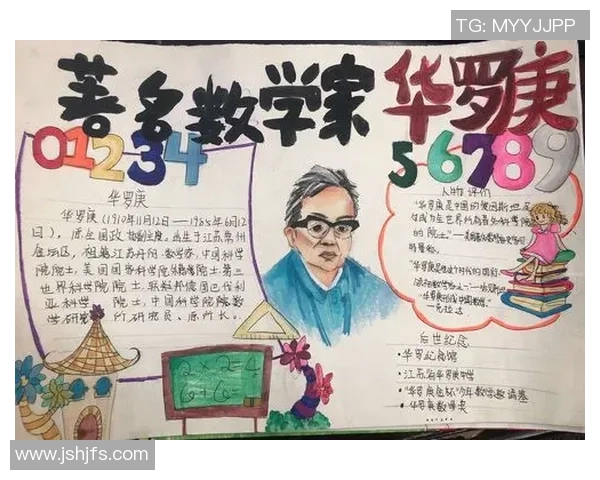 TG: MYYJJPP
著名数学家 华罗庚
01234
56789
华罗庚
华罗庚(1910年11月12日——1985年6月12
日),原全国政协副主席。出生于江苏常州
金坛区,祖籍江苏丹阳。数学家,中国科学
院院士,美国国家科学院外籍院士,第三
世界科学院院士,联邦德国巴伐利
亚科学院院士,中国科学院院数
学研究所研究员、原所长。
2×2=4
6+6=
人物评价
"华罗庚是中国的爱因斯坦,足
够成为全世界所有著名科学院
的院士。"
后世纪念
·华罗庚纪念馆
·江苏省华罗庚中学
·"华罗庚金杯"少年数学邀请赛
·华罗庚数学奖
www.jshjfs.com